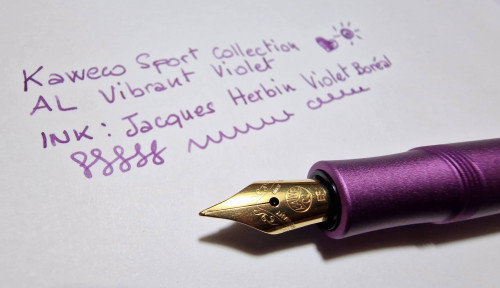 Kaweco Sport Collection
AL Vibrant Violet
INK: Jacques Herbin Violet Boréal
EF